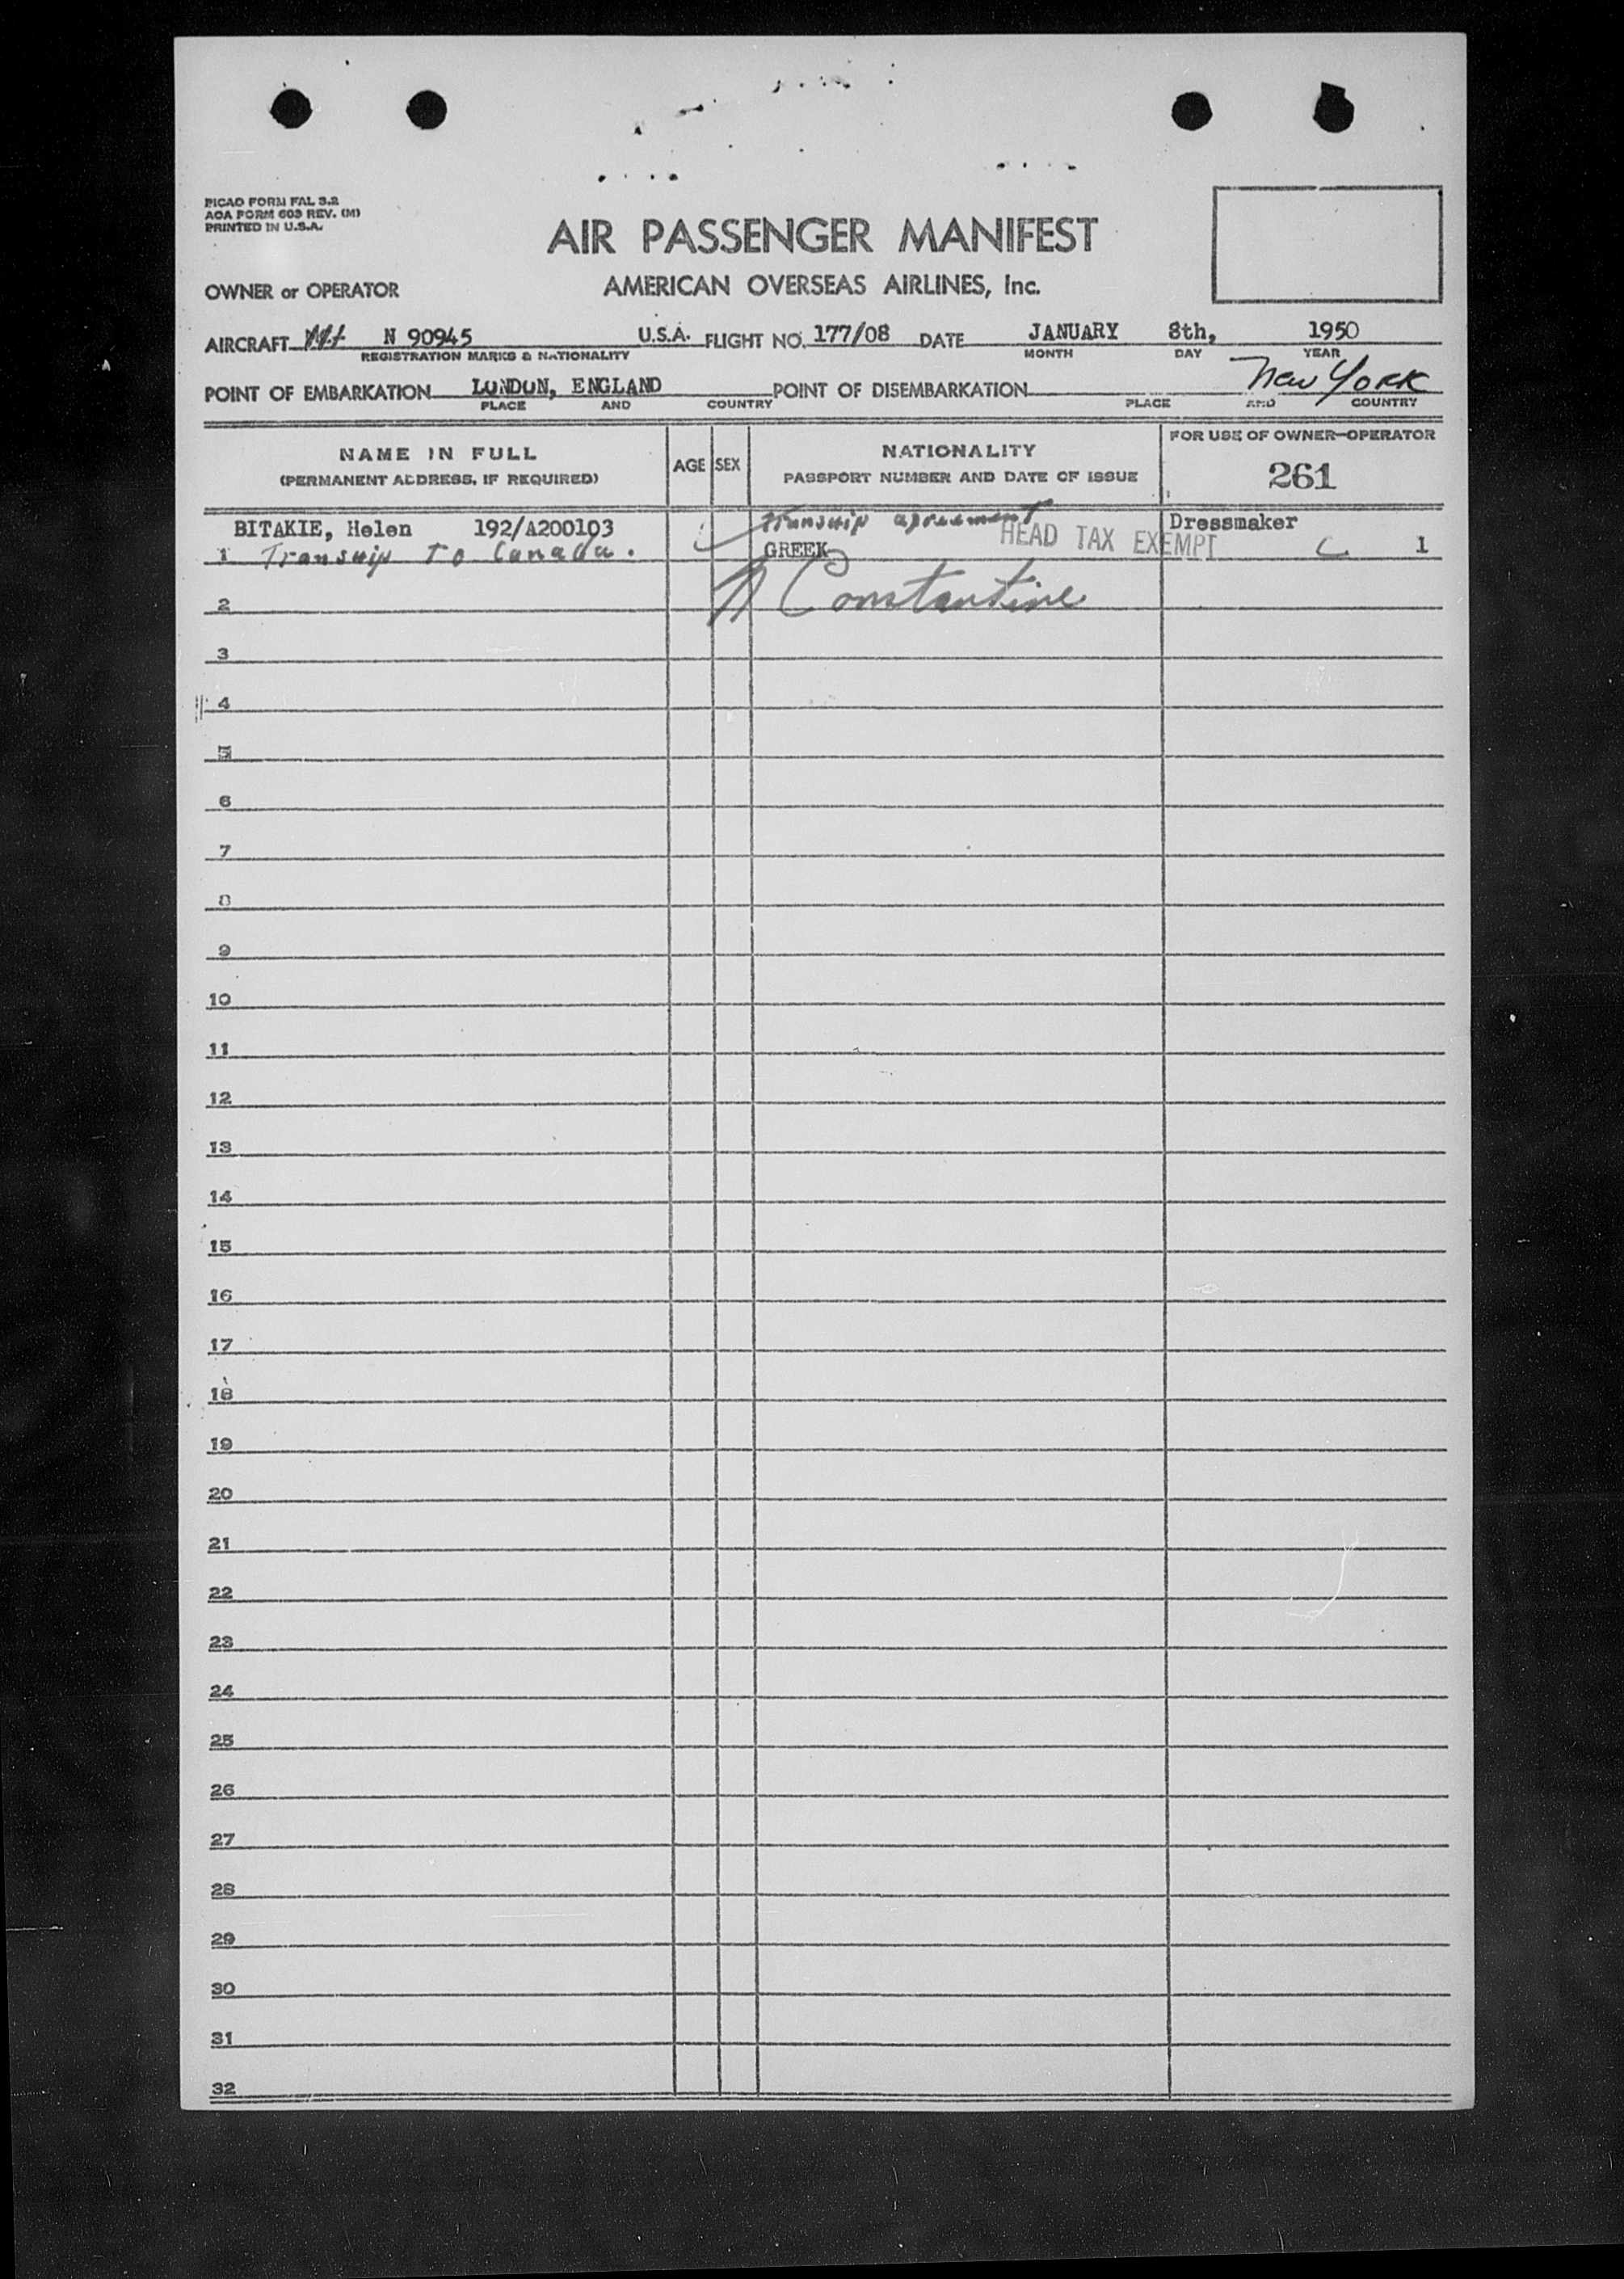 PICAO FORM FAL 3.2
AOA FORM 603 REV. (M)
PRINTED IN U.S.A.
AIR PASSENGER MANIFEST
OWNER or OPERATOR AMERICAN OVERSEAS AIRLINES, Inc.
AIRCRAFT N 90945 U.S.A. FLIGHT NO. 177/08 DATE JANUARY 8th, 1950
REGISTRATION MARKS & NATIONALITY MONTH DAY YEAR
POINT OF EMBARKATION LONDON, ENGLAND POINT OF DISEMBARKATION New York
PLACE AND COUNTRY PLACE AND COUNTRY
NAME IN FULL
(PERMANENT ADDRESS, IF REQUIRED)
AGE SEX
NATIONALITY
PASSPORT NUMBER AND DATE OF ISSUE
FOR USE OF OWNER-OPERATOR
261
BITAKIE, Helen 192/A200103 Tranship agreement Dressmaker
1 Tranship To Canada. GREEK HEAD TAX EXEMPT C 1
2 Constantine
3
4
5
6
7
8
9
10
11
12
13
14
15
16
17
18
19
20
21
22
23
24
25
26
27
28
29
30
31
32